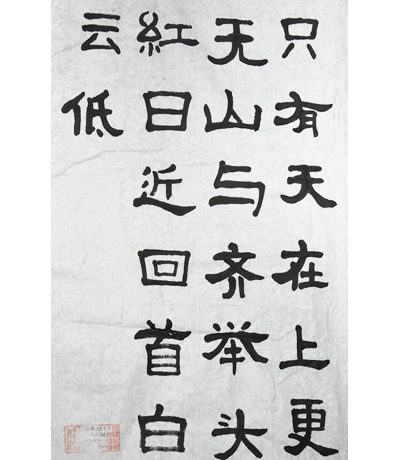 只有天在上更
无山与齐举头
紅日近回首白
云低